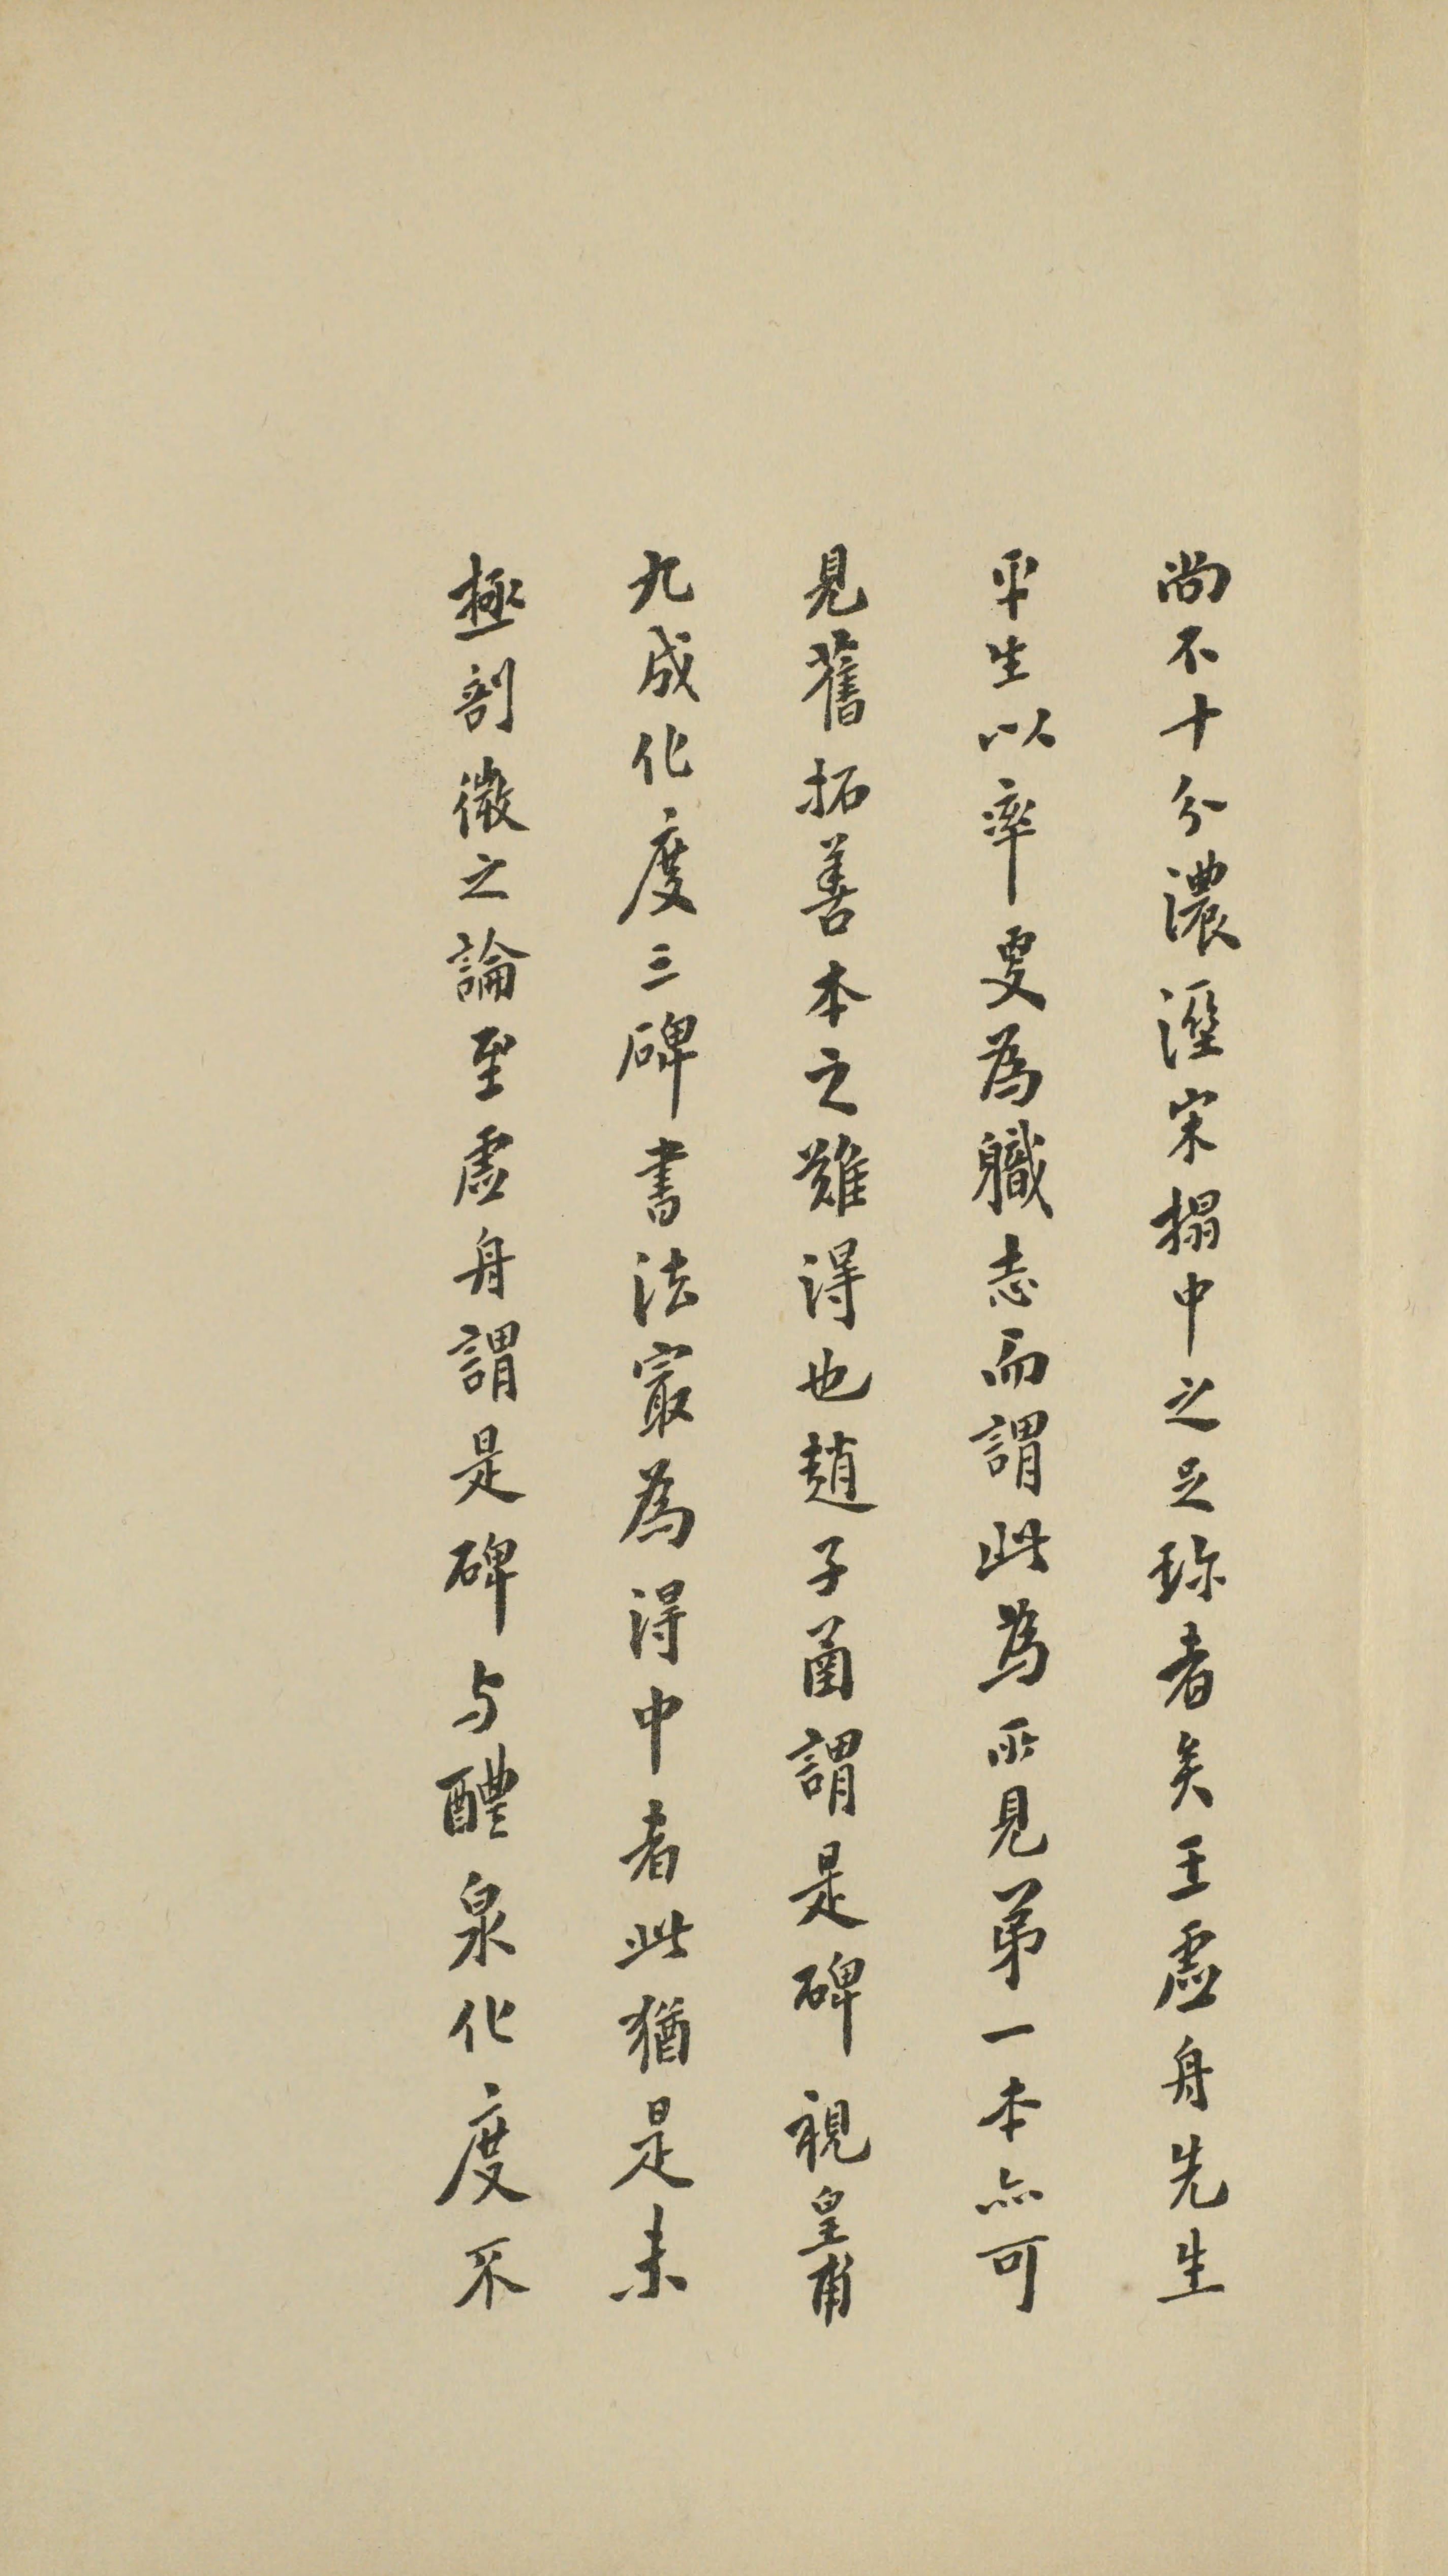 尚不十分濃溼宋搨中之足珎者矣王虛舟先生
平生以率叟為軄志而謂此為所見第一本亦可
見舊拓善本之難得也趙子函謂是碑視皇甫
九成化度三碑書法㝡為得中者此猶是未
極剖微之論至虛舟謂是碑与醴泉化度不